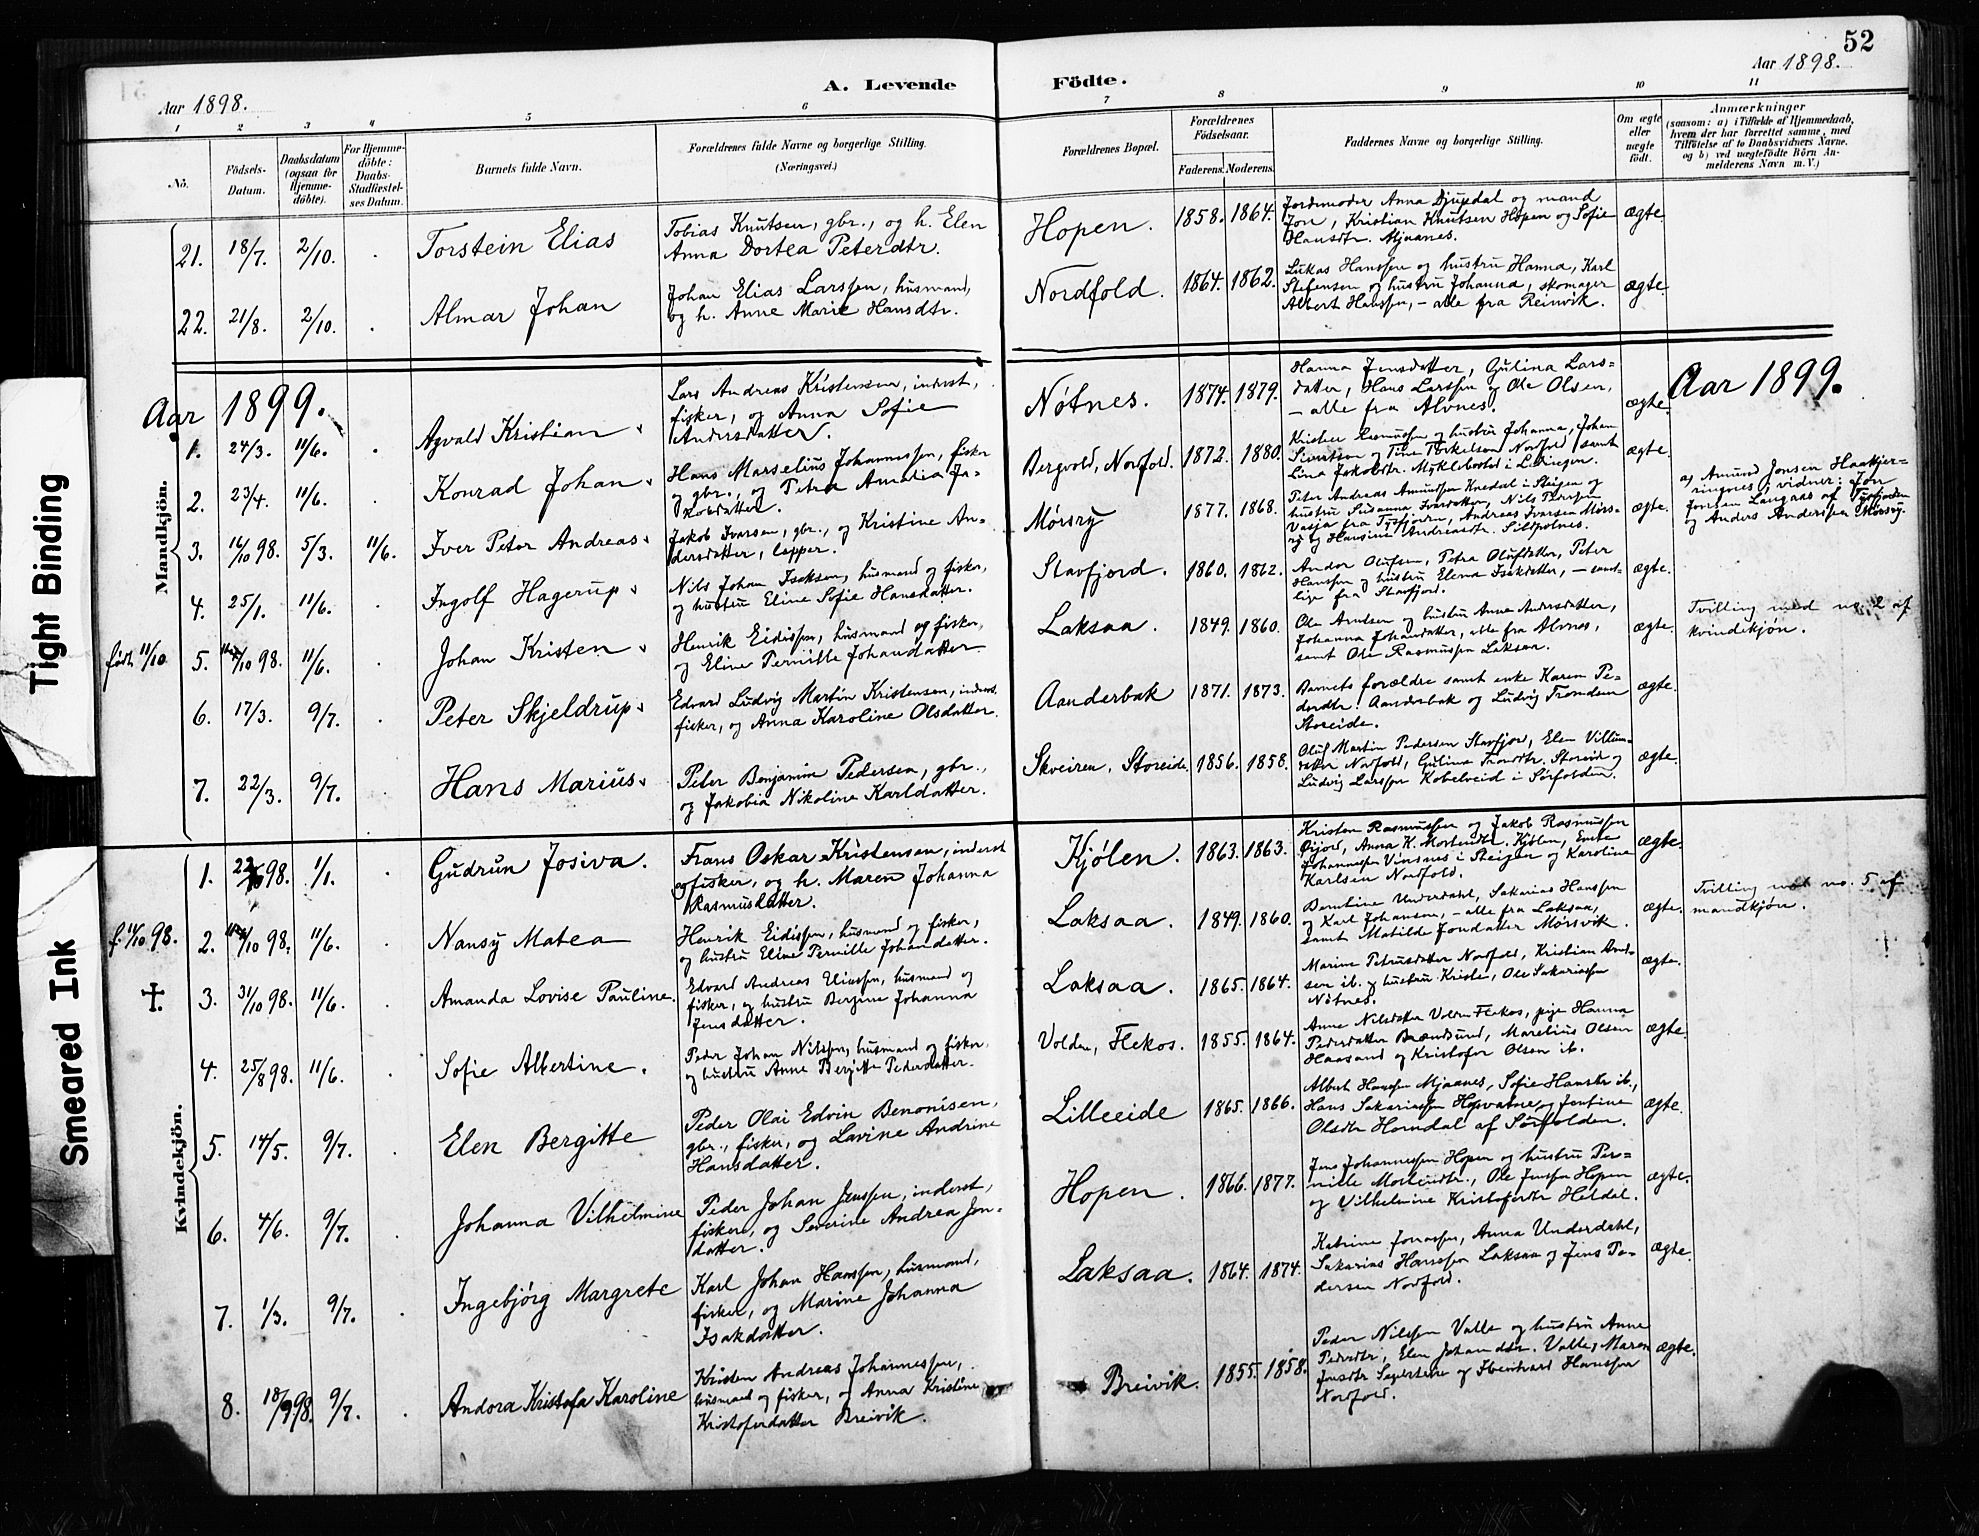 52
Aar 1898.
A. Levende Födte.
Aar 1898.
1 2 3 4 5 6 7 8 9 10 11
No.
Födsels-Datum.
Daabsdatum (ogsaa for Hjemme-döbte).
For Hjemme-döbte: Daabs-Stadfæstel-ses Datum.
Barnets fulde Navn.
Forældrenes fulde Navne og borgerlige Stilling. (Næringsvei.)
Forældrenes Bopæl.
Forældrenes Födselsaar.
Faderens. Moderens.
Faddernes Navne og borgerlige Stilling.
Om ægte eller uægte födt.
Anmærkninger
(saasom: a) i Tilfælde af Hjemmedaab, hvem der har forrettet samme, med Tilføielse af to Daabsvidners Navne. og b) ved uægtefödte Börn An-melderens Navn m. V.)
21. 18/7. 2/10. Torstein Elias
Tobias Knutsen, gbr., og h. Elen
Anna Dortea Peterdtr.
Hopen. 1858. 1864.
Jordmoder Anna Djupdal og mand
Jon, Kristian Knutsen Hopen og Sofie
Hansdtr. Mjaanes.
ægte.
22. 21/8. 2/10. Almar Johan
Johan Elias Larssen, husmand,
og h. Anne Marie Hansdtr.
Nordfold. 1864. 1862.
Lukas Hanssen og hustru Hanna, Karl
Stefensen og hustru Johanna, skomager
Albert Hanssen, – alle fra Reinvik.
ægte.
Aar 1899.
Aar 1899.
Mandkjön.
1. 24/3. 11/6. Agvald Kristian
Lars Andreas Kristensen, inderst,
fisker, og Anna Sofie
Andersdatter.
Nøtnes. 1874. 1879.
Hanna Jensdatter, Gulina Lars-
datter, Hans Larssen og Ole Olsen,
– alle fra Alvnes.
ægte.
2. 23/4. 11/6. Konrad Johan
Hans Marselius Johannessen, fisker
og gbr., og Petra Amalia Ja-
kobdatter.
Bergvold, Nordfold. 1872. 1880.
Rasmussen og hustru Johanna, Johan
Sivertsen og Tine Torkelsen Nordfold samt
Lina Jakobdtr. Myklebostad i
ægte.
3. 16/10 98. 5/3. 11/6. Iver Peter Andreas
Jakob Ivarsen, gbr., og Kristine An-
dersdatter, lapper.
Mørsry 1877. 1868.
Peter Andreas Amundsen i Steigen og
hustru Susanna Ivarsdatter, Nils Petersen
fra Tysfjorden, Andreas Ivarsen Mørs-
ry og Hansine Andreasdtr.
ægte.
a) Amund Jonsen Haakjer-
ringnes; vidner: Jon
Jonsen af Tysfjorden
og Anders Anderssen Mørsry.
4. 25/1. 11/6. Ingolf Hagerup
Nils Johan Isaksen, husmand og fisker,
og hustru Eline Sofie Hansdatter.
Stavfjord. 1860. 1862.
Andor Olufsen, Petra Olufdatter, Peter
Hanssen og hustru Elena Isakdatter, – samt-
lige fra Stavfjord.
ægte.
født 11/10
5. /10 98. 11/6. Johan Kristen
Henrik Eidissen, husmand og fisker,
og Eline Pernille Johandatter
Laksaa. 1849. 1860.
Ole Arntsen og hustru Anne Andersdatter,
Johanna Johandatter, alle fra Alvnes,
samt Ole Rasmussen Laksaa.
ægte.
Tvilling med no. 2 af
kvindekjøn.
6. 17/3. 9/7. Peter Skjeldrup
Edvard Ludvig Martin Kristensen, inderst,
fisker, og Anna Karoline Olsdatter
Aanderbak 1871. 1873.
Barnets forældre samt enke Karen Pe-
derdtr. Aanderbak og Ludvig Trondsen
Storeide.
ægte.
7. 22/3. 9/7. Hans Marius
Peter Benjamin Pedersen, gbr.,
og Jakobia Nikoline Karldatter.
Skveiren, Storeide. 1856. 1858.
Oluf Martin Pedersen Stavfjord, Elen Villum-
datter Nordfold, Gulina Trondtr. Storeid og
Ludvig Larssen Kobelveid i Sörfolden.
ægte.
Kvindekjön.
1. 22/10 98. 1/1. Gudrun Josiva.
Frans Oskar Kristensen, inderst
og fisker, og h. Maren Johanna
Rasmusdatter.
Kjølen. 1863. 1863.
Kristen Rasmussen og Jakob Rasmussen
Anna K. Mortendtr. Kjölen,
Johannessen Vinsnes i Steigen og Karoline
Karlsen Nordfold.
ægte.
f. 11/10 98.
2. /10 98. 11/6. Nansy Matea
Henrik Eidissen, husmand og fisker,
og hustru Eline Pernille Johandatter.
Laksaa. 1849. 1860.
Berntine Underdahl, Sakarias Hanssen
og Karl Johansen, – alle fra Laksaa,
samt Matilde Jondatter Mørsvik.
ægte.
Tvilling med no. 5 af
mandkjøn.
✝.
3. 31/10 98. 11/6. Amanda Lovise Pauline.
Edvard Andreas Eliassen, husmand og
fisker, og hustru Bergine Johanna
Jensdatter.
Laksaa. 1865. 1864.
Marine Petrusdatter Nordfold, Kristian
sen ib. og hustru Kristine, Ole Sakariassen
Nøtnes.
ægte.
4. 25/8 98. 11/6. Sofie Albertine.
Peder Johan Nilssen, husmand og fisker,
og hustru Anne Bergitte Pedersdatter.
Volden, Flekos. 1855. 1864.
Anne Nilsdatter Volden Flekos, pige Hanna
Pedersdatter Brændsund, Marelius Olsen
Haasand og Kristofer Olsen ib.
ægte.
5. 14/5. 9/7. Elen Bergitte
Peder Olai Edvin Benonisen,
gbr., fisker, og Lavine Andrine
Hansdatter.
Lilleeide 1865. 1866.
Albert Hanssen Mjaanes, Sofie Hansdtr ib.,
Hans Sakariassen Hopvatnet, og Jentine
Olsdtr Horndal af Sörfolden.
ægte.
6. 4/6. 9/7. Johanna Vilhelmine
Peder Johan Jenssen, inderst,
fisker, og Severine Andrea Jon-
datter.
Hopen. 1866. 1877.
Jens Johannessen Hopen og hustru Per-
nille Mortendtr., Ole Jenssen Hopen
og Vilhelmine Kristoferdtr Heldal.
ægte.
7. 1/3. 9/7. Ingebjörg Margrete
Karl Johan Hanssen, husmand,
fisker, og Marine Johanna
Isakdatter.
Laksaa. 1864. 1874.
Katrine Jonassen, Anna Underdahl,
Sakarias Hanssen Laksaa og Jens Pe-
dersen Nordfold.
ægte.
8. 18/9 98. 9/7. Andora Kristofa Karoline
Kristen Andreas Johannessen,
husmand og fisker, og Anna Kristine
Kristoferdatter Breivik.
Breivik. 1855. 1858.
Peder Nilssen Valle og hustru Anne
Pederdtr, Elen Johandtr. Valle, Maren
Jensdtr og Ebenhard Hanssen
Nordfold.
ægte.
Tight Binding
Smeared Ink